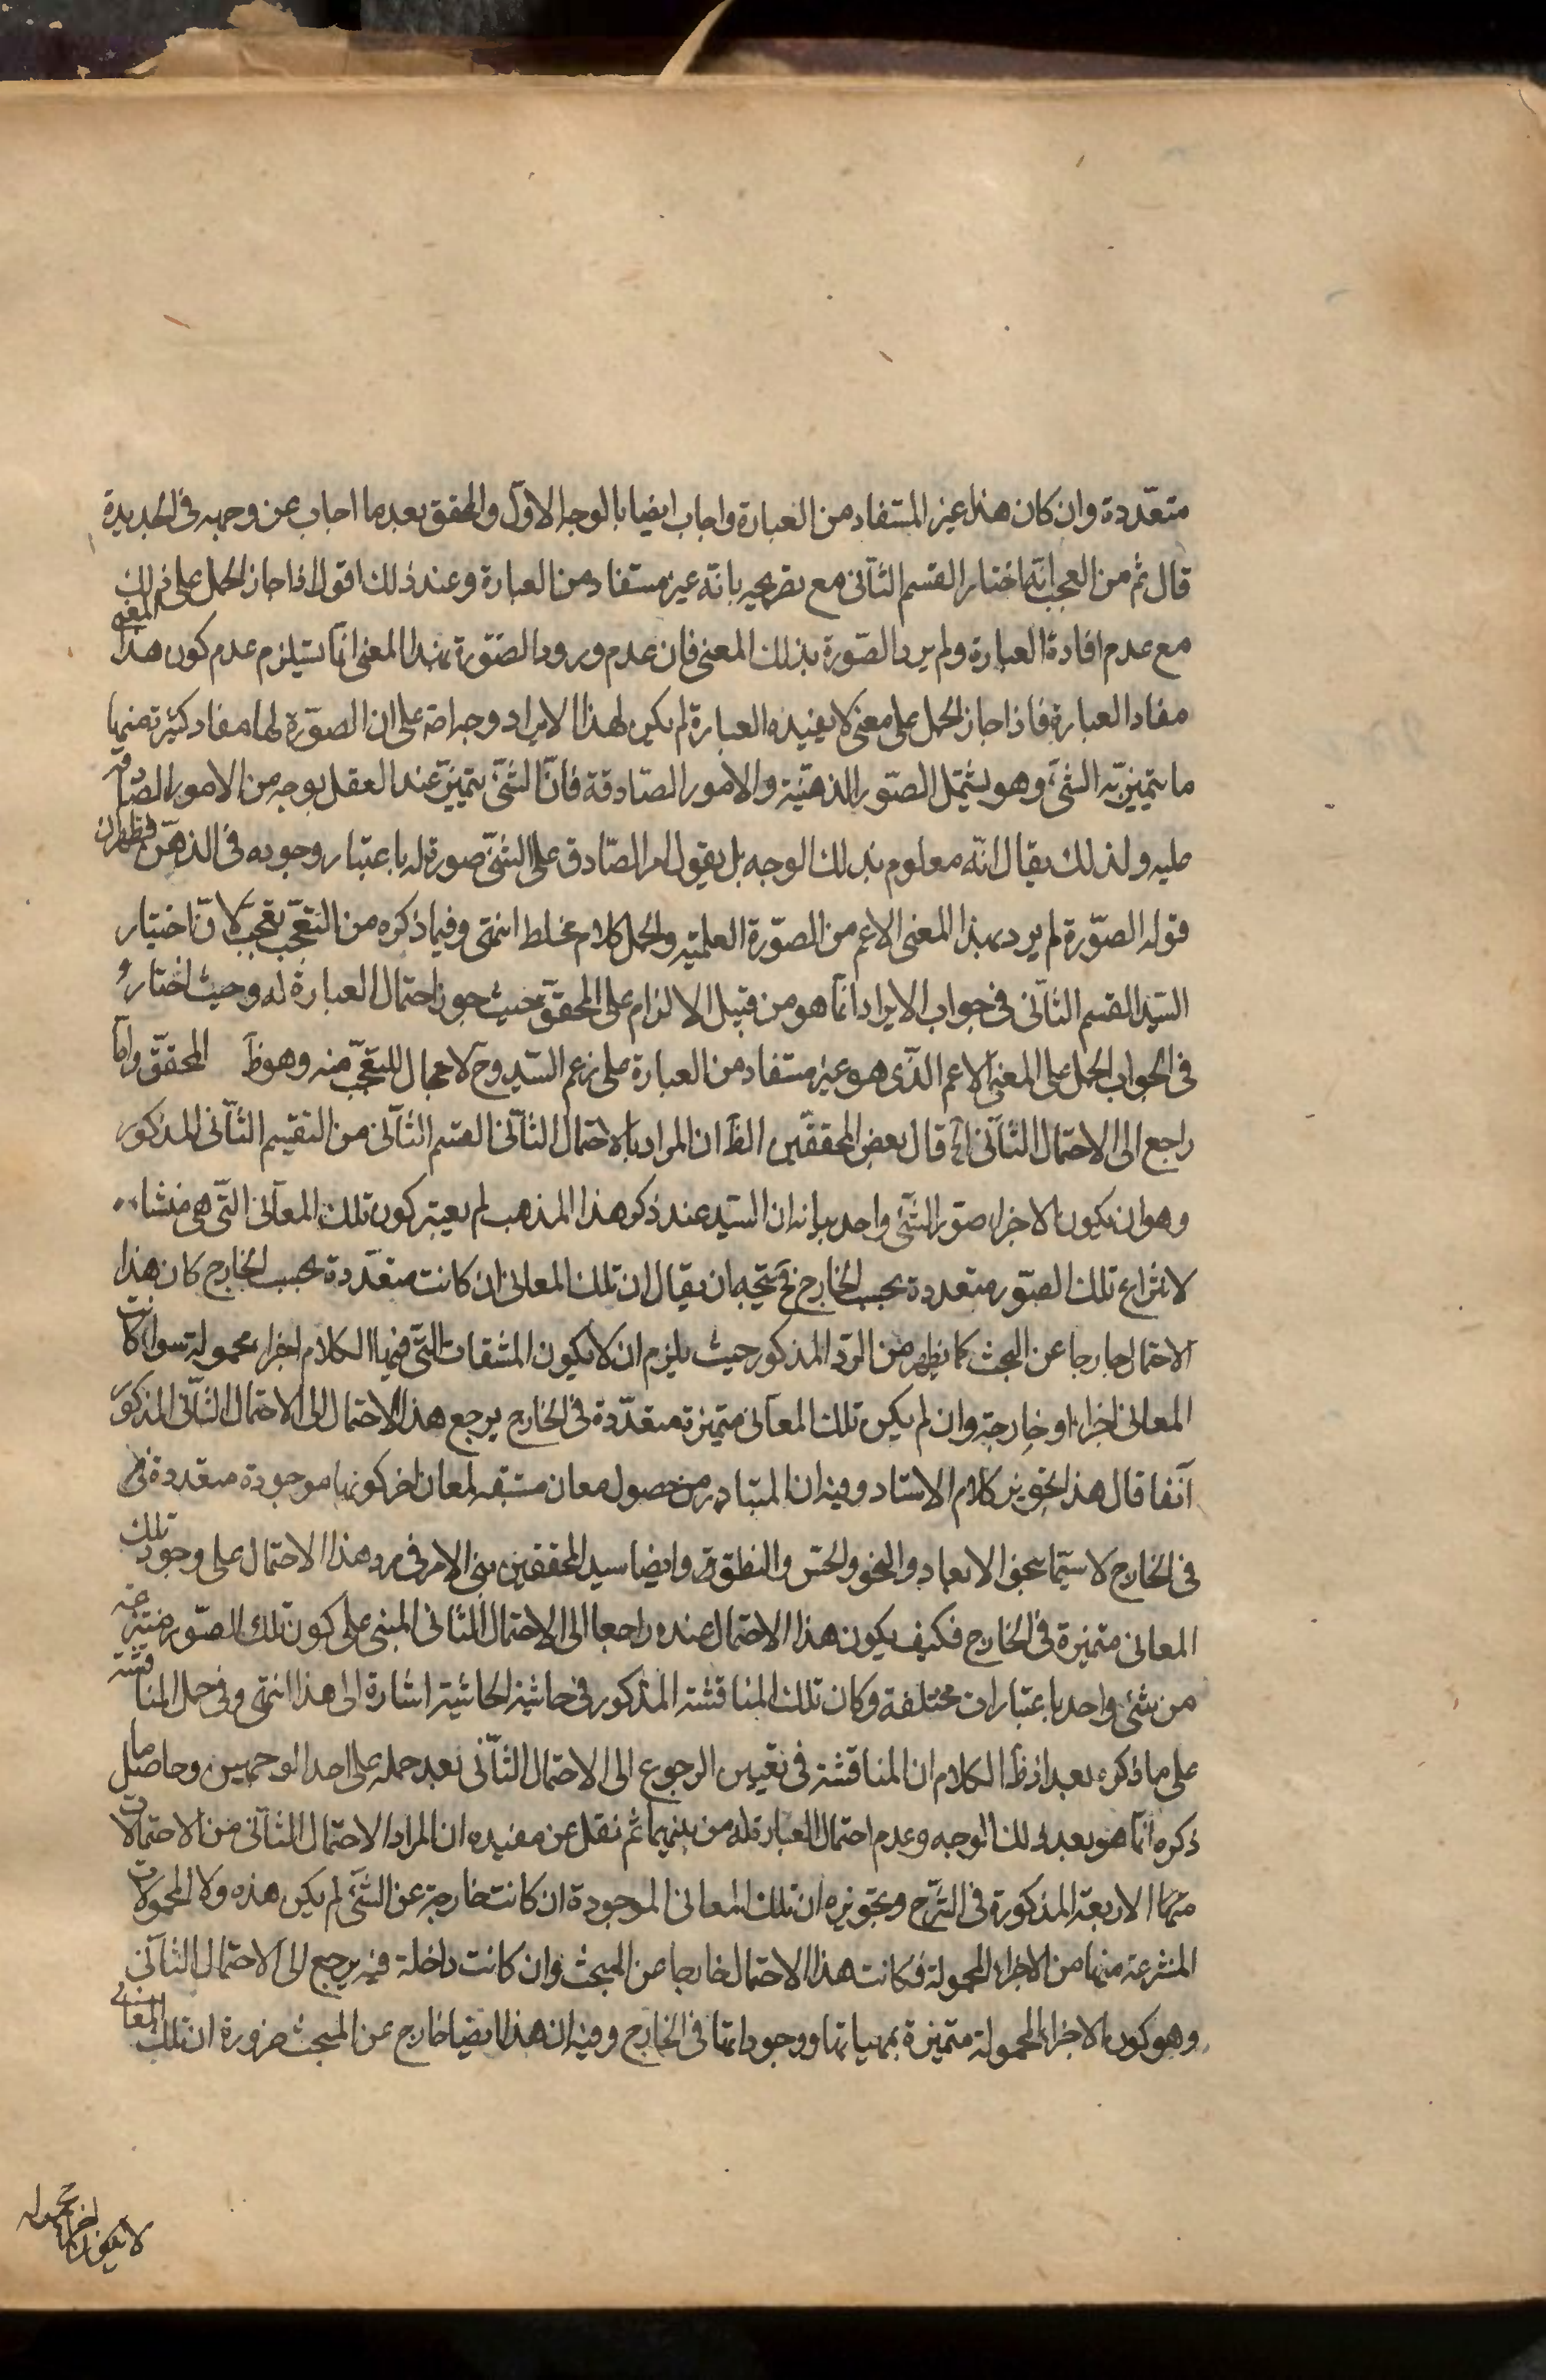 متعددة وان كان هذا غير المستفاد من العبارة واجاب ايضا بالوجه الاول والمحقق بعد ما اجاب عن وجهيه فى الجديدة
قال ثم من العجب انه اختار القسم الثانى مع تصريحه بانه غير مستفاد من العبارة وعند ذلك اقول اذا جاز الحمل على ذلك المعنى
مع عدم افادة العبارة ولم يرد الصورة بذلك المعنى فان عدم ورود الصورة بهذا المعنى انما يستلزم عدم كون هذا
مفاد العبارة فاذا جاز الحمل على معنى لا يفيده العبارة لم يكن لهذا الايراد وجه اصلا على ان الصورة لها مفاد كثيرة منها
ما يتميز به الشئ وهو يشتمل الصور الذهنية والامور الصادقة فان الشئ يتميز عند العقل بوجه من الامور الصادقة
عليه ولذلك يقال انه معلوم بذلك الوجه بل يقول الامر الصادق على الشئ صورة له باعتبار وجوده فى الذهن فظهر ان
قوله الصورة لم يرد بهذا المعنى الاعم من الصورة العلمية والحمل كلام مختلط انتهى وفيما ذكره من التعجب تعجب لان اختيار
السيد القسم الثانى فى جواب الايراد انما هو من قبيل الالزام على المحقق حيث جوز احتمال العبارة له وحيث اختاره
فى الجواب الحمل على المعنى الاعم الذى هو غير مستفاد من العبارة على زعم السيد وح لا مجال للتعجب منه وهو ظ المحقق واما
راجع الى الاحتمال الثانى اه قال بعض المحققين الظ ان المراد بالاحتمال الثانى القسم الثانى من التقسيم الثانى المذكور
وهو ان يكون الاجزاء صور الشئ واحد بيانه ان السيد عند ذكر هذا المذهب لم يعتبر كون تلك المعانى التى هى منشاء
لانتزاع تلك الصور متعددة بحسب الخارج فح يتجه ان يقال ان تلك المعانى ان كانت متعددة بحسب الخارج كان هذا
الاحتمال خارجا عن البحث كما يظهر من الرد المذكور حيث يلزم ان لا يكون المشتقات التى فيها الكلام اجزاء محمولة سواء كانت
المعانى اجزاء او خارجة وان لم يكن تلك المعانى متميزة متعددة فى الخارج يرجع هذا الاحتمال الى الاحتمال الثانى المذكور
آنفا قال هذا تحويز كلام الاستاد وفيه ان المتبادر من حصول معان مشتقه لمعان اخر كونها موجودة متعددة فى
فى الخارج لا سيما نحو الابعاد والنمو والحس والنطق وايضا سيد المحققين بنى الامر فى رد هذا الاحتمال على وجود تلك
المعانى متميزة فى الخارج فكيف يكون هذا الاحتمال عنده راجعا الى الاحتمال الثانى المبنى على كون تلك الصور منتزعة
من شئ واحد باعتبارات مختلفة وكان تلك المناقشة المذكور فى حاشية الحاشية اشارة الى هذا انتهى وفى حمل المناقشة
على ما ذكره بعد اذ ظ الكلام ان المناقشة فى تعيين الرجوع الى الاحتمال الثانى بعد حمله على احد الوجهين وحاصل ما
ذكره انما هو بعد ذلك الوجه وعدم احتمال العبارة له من بينهما ثم نقل عن مفيده ان المراد الاحتمال الثانى من الاحتمالات
منها الاربعة المذكورة فى الشرح وتحويزه ان تلك المعانى الموجودة ان كانت خارجة عن الشئ لم يكن هذه ولا المحمولات
المنتزعة منها من الاجزاء المحمولة فكانت هذا الاحتمال خارجا عن المبحث وان كانت داخلة فيه يرجع الى الاحتمال الثانى
وهو كون الاجزاء المحمولة متميزة بمهياتها ووجوداتها فى الخارج وفيه ان هذا ايضا خارج عن المبحث ضرورة ان تلك المعانى
لا يكون اجزاء محموله